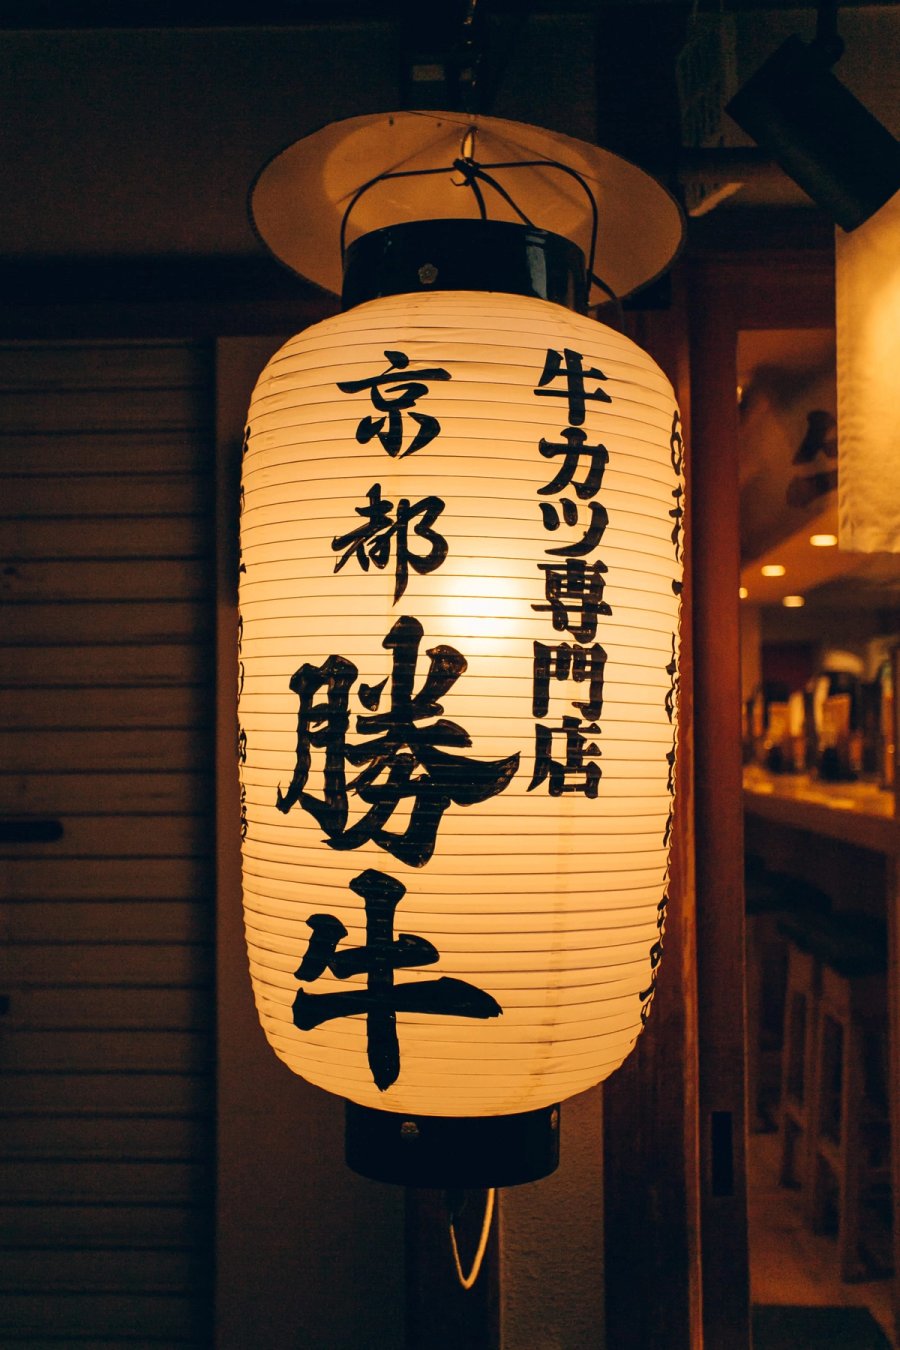 牛カツ専門店
京都勝牛